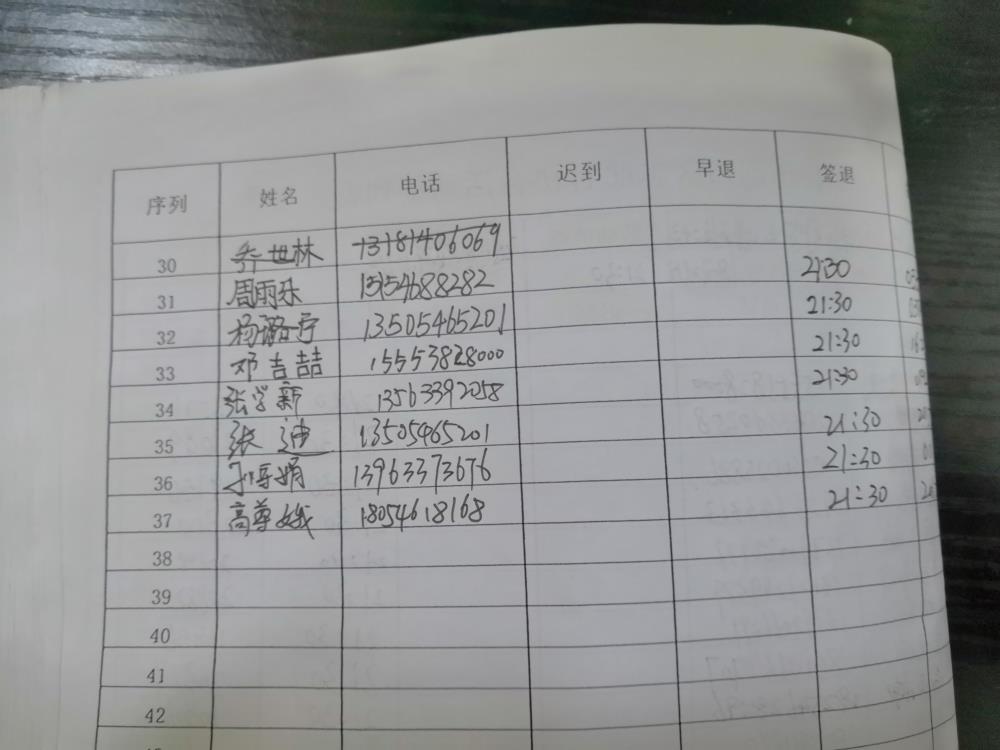 序列 姓名 电话 迟到 早退 签退
30 乔世林 13181406069
31 周雨乐 15154688282 21:30
32 杨潞宁 13505465201 21:30
33 邓吉喆 15553828000 21:30
34 张学新 13563392058 21:30
35 张迪 13505465201 21:30
36 孙寻娟 13963373676 21:30
37 高尊娥 18054618168 21:30
38
39
40
41
42